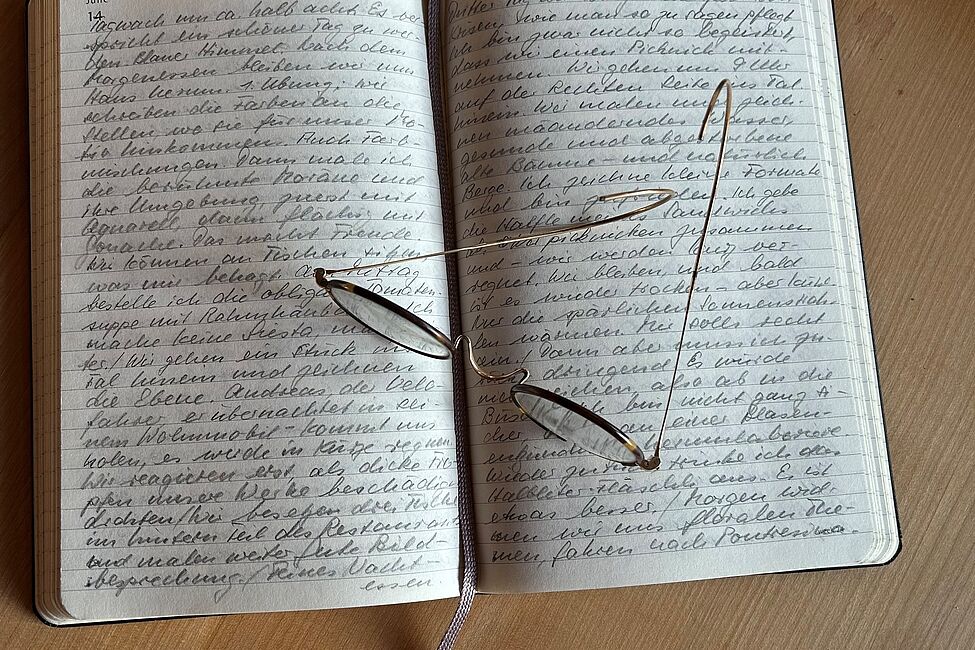 June
14
Tagwach um ca. halb acht. Es ver-
spricht ein schöner Tag zu wer-
den. Blauer Himmel. Nach dem
Morgenessen bleiben wir ums
Haus herum. 1. Übung: Wir
schreiben die Farben an die
Stellen wo sie für unser
hinkommen. Auch Farb-
mischungen. Dann male ich
die berühmte Moräne und
ihre Umgebung zuerst mit
Aquarell, dann flächig mit
Gouache. Das macht Freude.
Wir können an Tischen
was mir behagt. Am Mittag
bestelle ich die obligate Tomaten-
suppe mit Rahmhaube
mache keine Siesta
/ Wir gehen ein Stück in
Tal hinein und zeichnen
die Ebene. Andreas der Velo-
fahrer, er übernachtet in sei-
nem Wohnmobil - kommt uns
holen, es würde in Kürze regnen.
Wir reagieren erst, als dicke Trop-
pfen unsere Werke beschädigen
/ Wir besetzen drei Tische
im hintern Teil des Restaurants
und malen weiter. Gute Bild-
besprechung / Feines Nacht-
essen
Dritter Tag
Krisen, wie man so zu sagen pflegt
Ich bin zwar nicht so begeistert,
dass wir einen Picknick mit-
nehmen. Wir gehen um 9 Uhr
auf der rechten Seite ins Tal
hinein. Wir malen und zeich-
nen mäanderndes Wasser,
gesunde und abgestorbene
alte Bäume - und natürlich
Berge. Ich zeichne kleine Formate
und bin Ich gebe
die Hälfte meines Sandwichs
picknicken zusammen
und - wir werden ver-
regnet. Wir bleiben, und bald
ist es wieder trocken - aber
nur die spärlichen Sonnenstrah-
len wärmen. Mir solls recht
sein. / Dann aber muss ich zu-
dringend. Es würde
reichen, also ab in die
Büsche bin nicht ganz
an einer Blasen-
wieder trinke ich das
Halbliter-Fläschli aus. Es ist
etwas besser. / Morgen wid-
men wir uns floralen The-
men, fahren nach Pontresina.